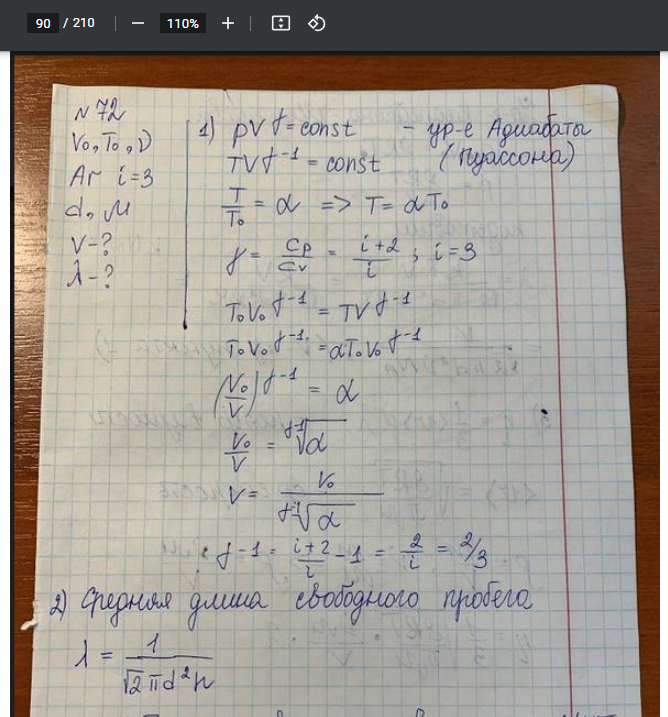 90 / 210
110%
N 72
V₀, T₀, ν
Ar i=3
d, μ
V-?
λ-?
1) pV^γ = const - ур-е Адиабаты
TV^γ-1 = const (Пуассона)
T/T₀ = α => T = αT₀
γ = Cp/Cv = i+2/i ; i=3
T₀V₀^γ-1 = TV^γ-1
T₀V₀^γ-1 = αT₀V₀^γ-1
(V₀/V)^γ-1 = α
V₀/V = ^γ-1√α
V = V₀/^γ-1√α
γ-1 = i+2/i - 1 = 2/i = 2/3
2) Средняя длина свободного пробега
λ = 1/√2 πd²n